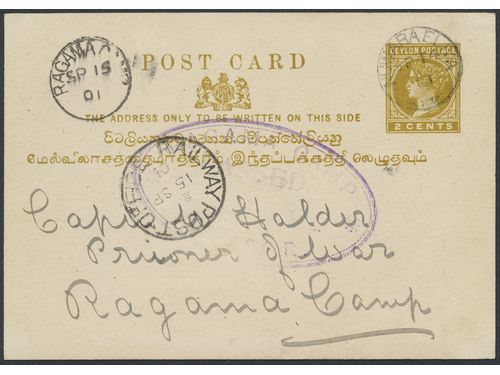 RAGAMA CAMP
SP 15
01
POST CARD
THE ADDRESS ONLY TO BE WRITTEN ON THIS SIDE
CEYLON POSTAGE
2 CENTS
மேல்விலாசத்தைமாத்திரம் இந்தப்பக்கத்தி லெழுதவும்
RAILWAY POST OFFICE
SP 15
01
Capt de Halder
Prisoner of War
Ragama Camp